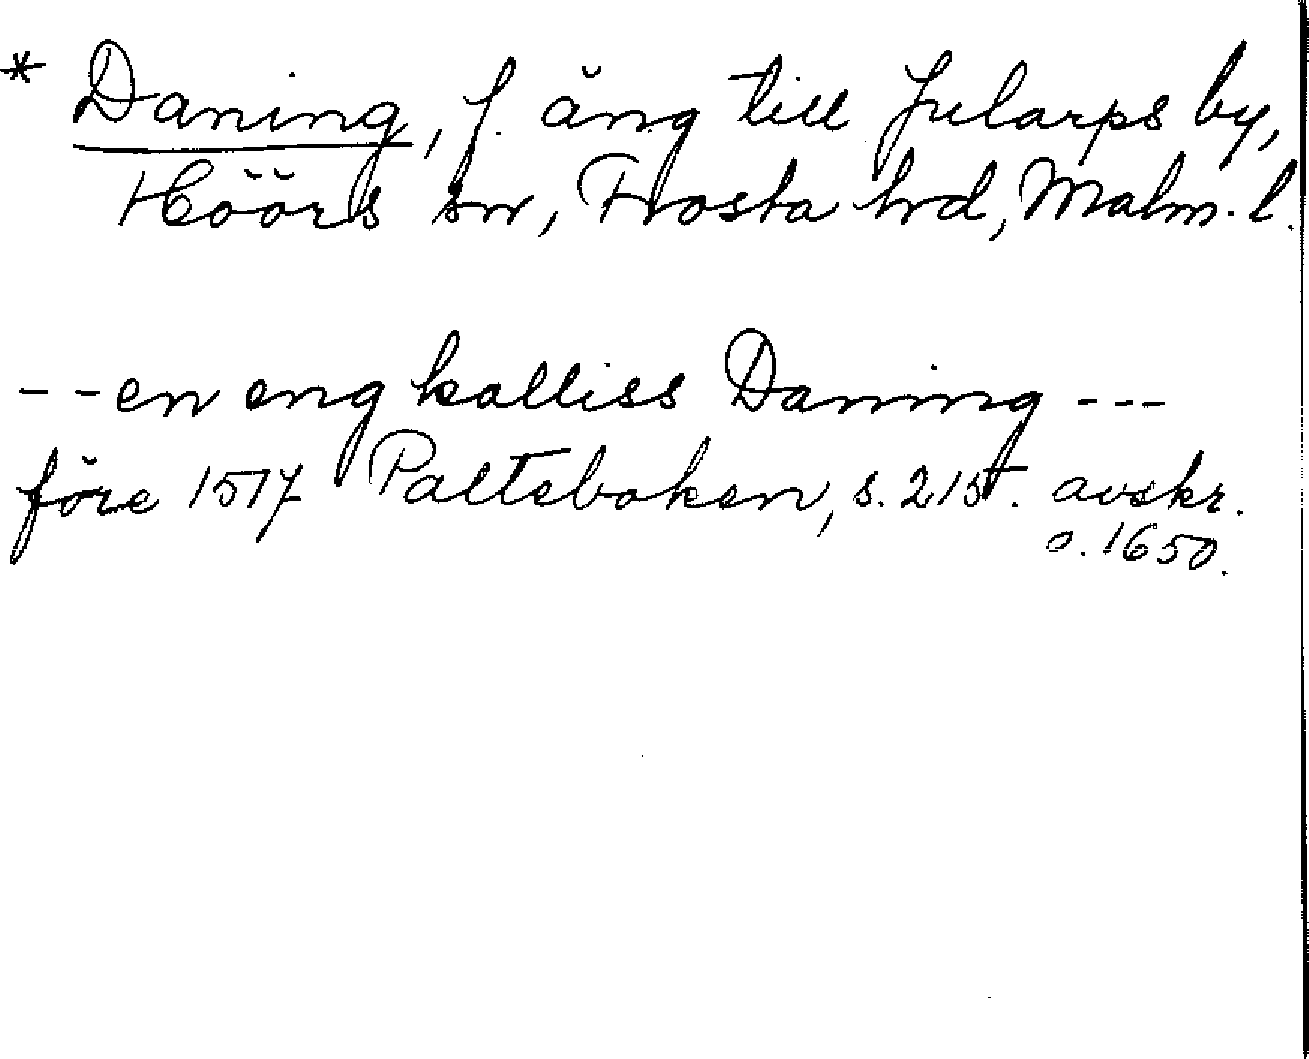 * Daning, f. äng till Jularps by,
Höörs sn, Frosta hrd, Malm. l.
-- en eng kalliss Daning ---
före 1517 Palteboken, s. 215. avskr.
o. 1650.